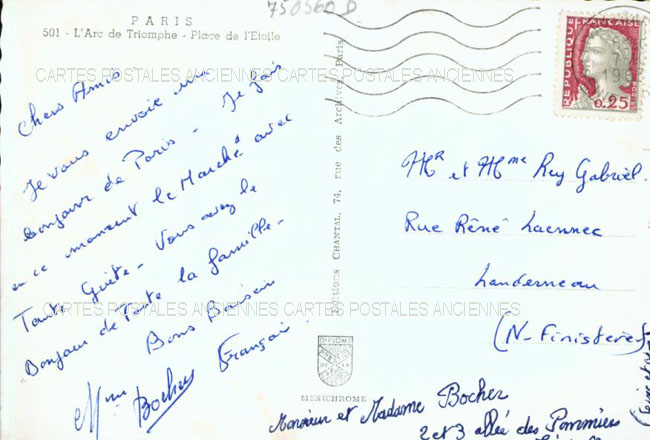 750560 D
PARIS
501 - L'Arc de Triomphe - Place de l'Etoile
CARTES POSTALES ANCIENNES CARTES POSTALES ANCIENNES
Chers Amis
Je vous envoie un
bonjour de Paris - Je fais
en ce moment le Marché avec
Tante Guite - Vous avez le
Bonjour de Toute la famille -
Bons Baisers
François.
Mme Bocher
CARTES POSTALES ANCIENNES CARTES POSTALES ANCIENNES
Editions CHANTAL, 74, rue des Archives, Paris
DIPLOME
MEXICHROME
REPUBLIQUE FRANÇAISE
0,25
Mr et Mme Rey Gabriel.
Rue Réné Laennec
Landerneau
(N-Finistère)
Monsieur et Madame Bocher
2 et 3 allée des Pommiers